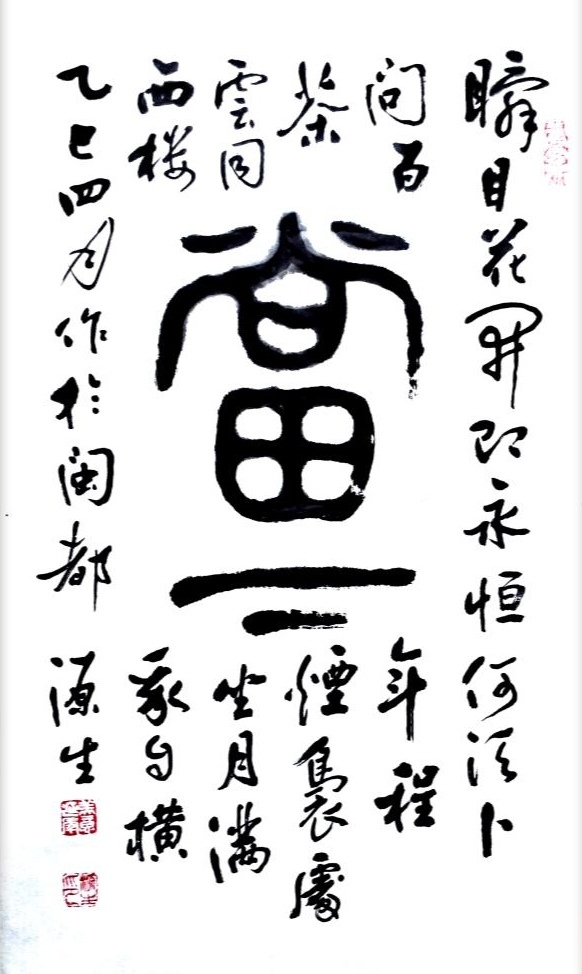 瞬目花開即永恒何須卜
問百年程
茶煙裊處
雲同坐月滿
西楼我自横
當下
乙巳四月作於闽都源生